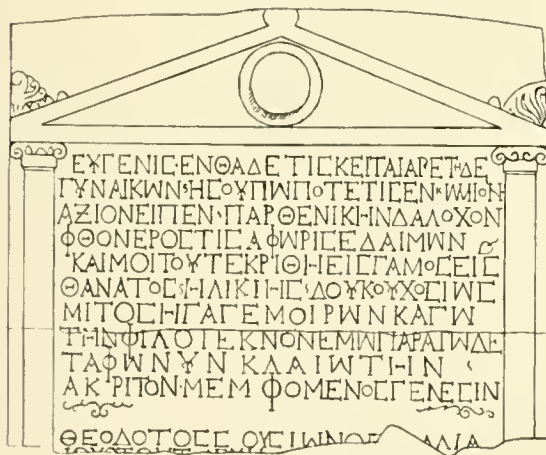 ΕΥΓΕΝΙϹ·ΕΝΘΑΔΕΤΙϹΚΕΙΤΑΙΑΡΕΤΗΔΕ
ΓΥΝΑΙΚΩΝ·ΗϹΟΥΠΩΠΟΤΕΤΙϹΕΝΚΩΜΙΟΝ
ΑΞΙΟΝΕΙΠΕΝ·ΠΑΡΘΕΝΙΚΗΝΔΑΛΟΧΟΝ
ΦΘΟΝΕΡΟϹΤΙϹΑΦΩΡΙϹΕΔΑΙΜΩΝ
ΚΑΙΜΟΙΤΟΥΤΕΚΡΙΘΗΕΙϹΓΑΜΟϹΕΙϹ
ΘΑΝΑΤΟϹ·ΗΛΙΚΙΗϹ·ΔΟΥΚΟΥΧΟϹΙΩϹ
ΜΙΤΟϹΗΓΑΓΕΜΟΙΡΩΝΚΑΓΩ
ΤΗΝΦΙΛΟΤΕΚΝΟΝΕΜΩΠΑΡΑΤΩΔΕ
ΤΑΦΩΝΥΝΚΛΑΙΩΤΗΝ
ΑΚΡΙΤΟΝ·ΜΕΜΦΟΜΕΝΟϹΓΕΝΕϹΙΝ
ΘΕΟΔΟΤΟϹϹΟΥϹΙΩΝ